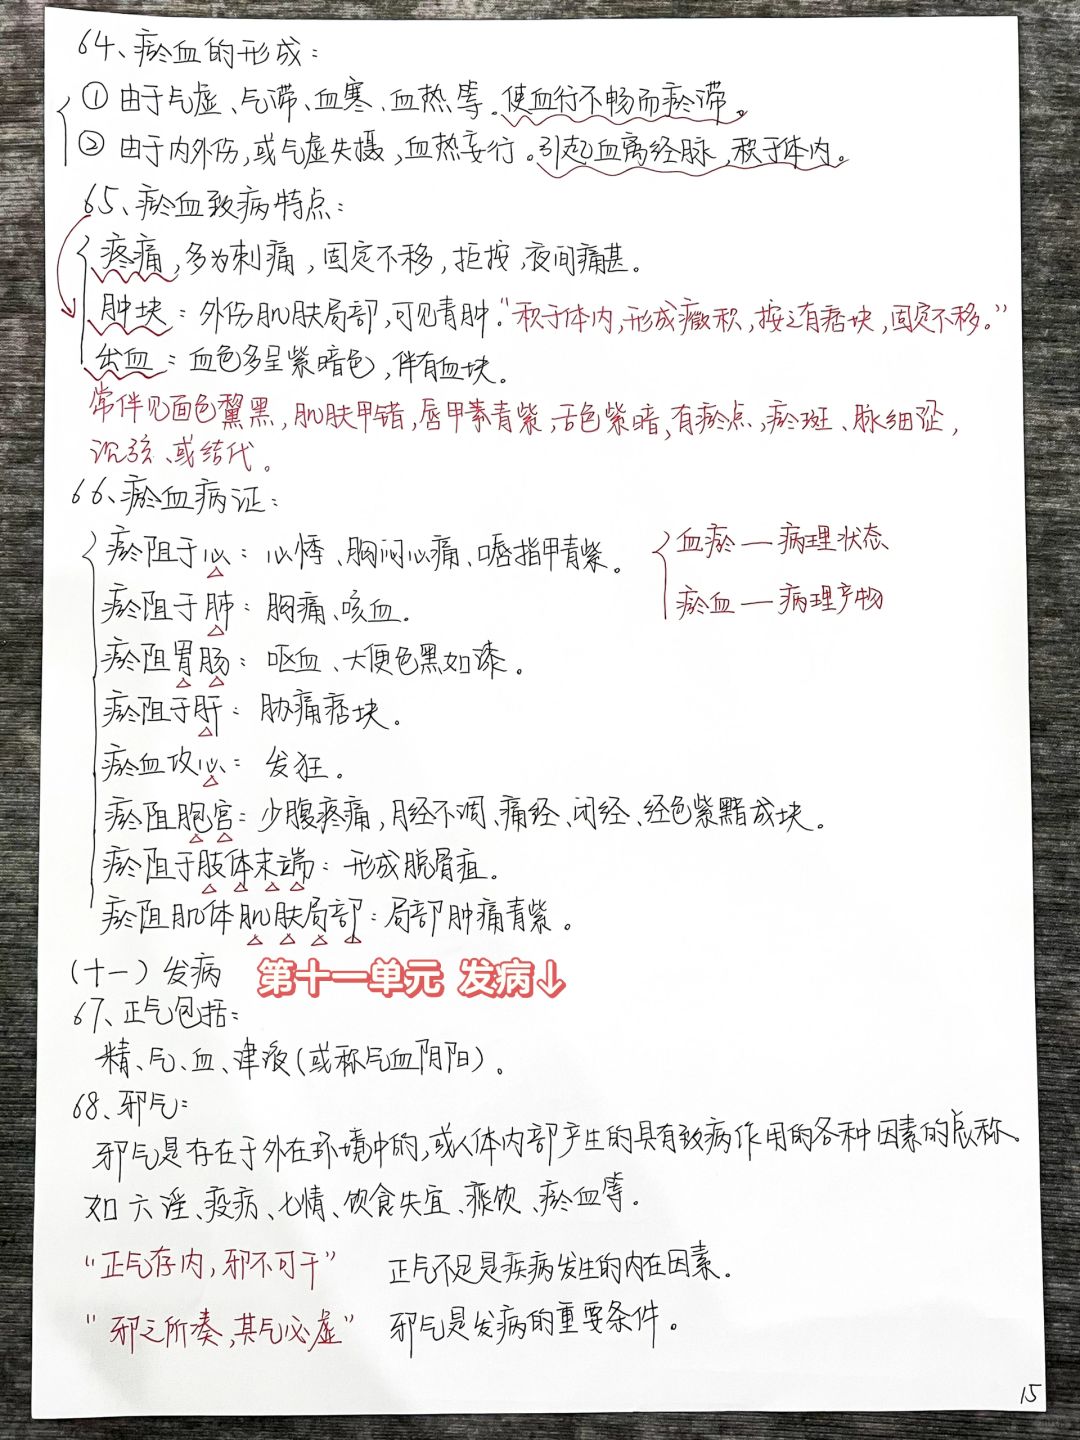 64、瘀血的形成：
① 由于气虚、气滞、血寒、血热等。使血行不畅而瘀滞。
② 由于内外伤，或气虚失摄，血热妄行。引起血离经脉，积于体内。
65、瘀血致病特点：
疼痛，多为刺痛，固定不移，拒按，夜间痛甚。
肿块：外伤肌肤局部，可见青肿。“积于体内，形成癥积，按之有痞块，固定不移。”
出血：血色多呈紫暗色，伴有血块。
常伴见面色黧黑，肌肤甲错，唇甲青紫，舌色紫暗，有瘀点，瘀斑、脉细涩，
沉弦、或结代。
66、瘀血病证：
瘀阻于心：心悸、胸闷心痛、唇指甲青紫。
血瘀—病理状态
瘀阻于肺：胸痛、咳血.
瘀血—病理产物
瘀阻胃肠：呕血、大便色黑如漆。
瘀阻于肝：胁痛痞块.
瘀血攻心：发狂.
瘀阻胞宫：少腹疼痛，月经不调、痛经、闭经、经色紫黯成块。
瘀阻于肢体末端：形成脱骨疽.
瘀阻肌体肌肤局部：局部肿痛青紫。
(十一) 发病 第十一单元 发病↓
67、正气包括：
精、气、血、津液(或称气血阴阳).
68、邪气：
邪气是存在于外在环境中的，或人体内部产生的具有致病作用的各种因素的总称。
如六淫、疫疠、七情、饮食失宜、痰饮、瘀血等.
“正气存内，邪不可干” 正气不足是疾病发生的内在因素.
“邪之所凑，其气必虚” 邪气是发病的重要条件。
15